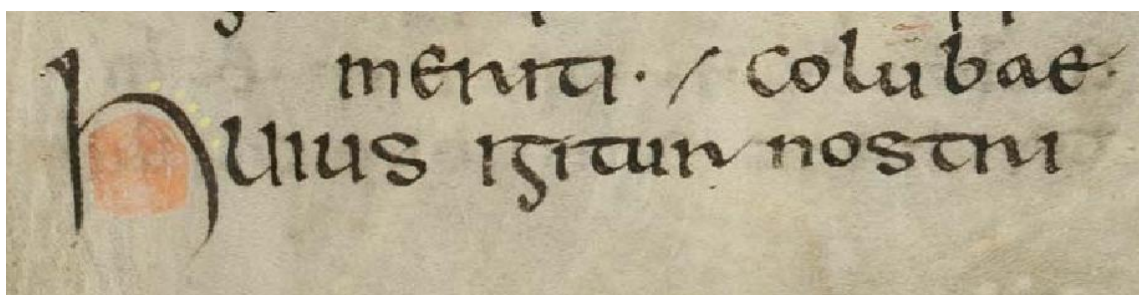 meriti · / colūbae ·
huius igitur nostri